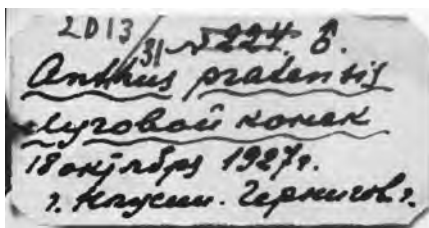 2013/31 № 224. ♂.
Anthus pratensis
Луговой конек
18 октября 1927г.
г. Чернигов.